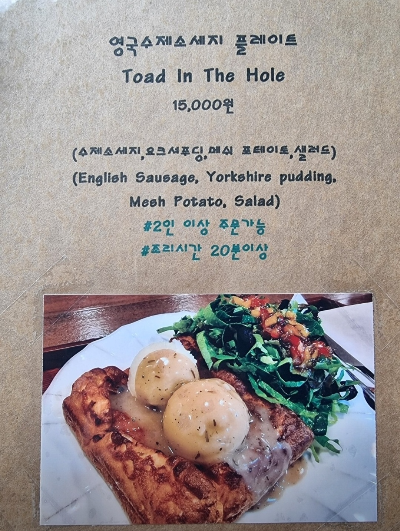 영국수제소세지 플레이트
Toad In The Hole
15,000원
(수제소세지,요크셔푸딩,메쉬 포테이트,샐러드)
(English Sausage, Yorkshire pudding,
Mesh Potato, Salad)
#2인 이상 주문가능
#조리시간 20분이상